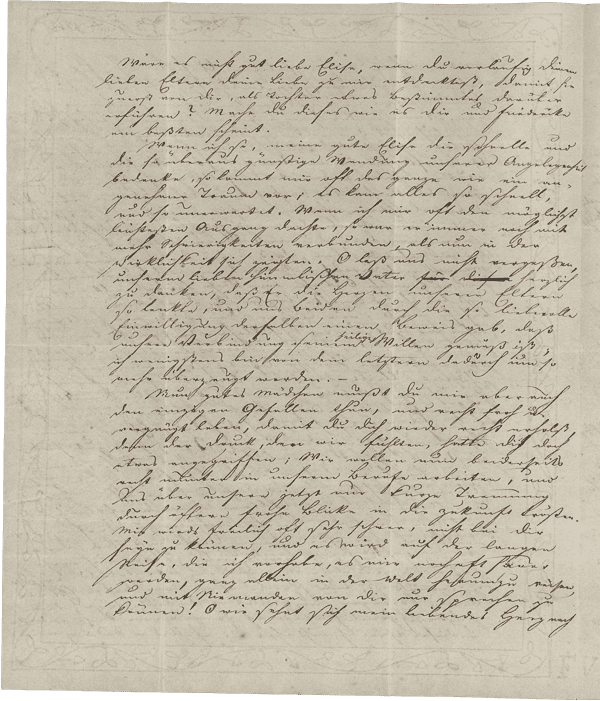 Wäre es nicht gut liebe Elise, wenn du vorläufig deinen
lieben Eltern deine Liebe zu mir entdecktest, damit sie
zuerst von dir, als Tochter etwas Bestimmtes darüber
erführen? Mache du dieses wie es dir und Friederike
am beßten scheint.
Wenn ich so, meine gute Elise die schnelle und
die so überaus günstige Wendung unserer Angelegenheit
bedenke, so kommt mir oft das ganze wie ein an-
genehmer Traum vor, es kam alles so schnell,
und so unerwartet. Wenn ich mir oft den möglichst
leichtesten Ausgang dachte, so war er immer noch mit
mehr Schwierigkeiten verbunden, als nun in der
Wirklichkeit sich zeigten. O laß uns nicht vergessen,
unserm lieben himmlischen Vater herzlich
zu danken, daß Er die Herzen unserer Eltern
so lenkte, und uns beiden durch die so liebevolle
Einwilligung derselben einen Beweis gab, daß
unsere Verbindung seinem heiligen Willen gemäß ist,
ich wenigstens bin von dem letztern dadurch um so
mehr überzeugt worden. –
Nun gutes Mädchen mußt du mir aber auch
den einzigen Gefallen thun, und recht froh u.
vergnügt leben, damit du dich wieder recht erholst,
denn der Druck, den wir fühlten, hatte dich doch
etwas angegriffen. Wir wollen nun beiderseits
recht munter in unserm Berufe arbeiten, und
uns über unsere jetzt nur kurze Trennung
durch öftere frohe Blicke in die Zukunft trösten.
Mir wirds freilich oft sehr schwer, nicht bei dir
seyn zu können, und es wird auf der langen
Reise, die ich vorhabe, es mir noch oft schwer
werden, ganz allein in der Welt
und mit Niemanden von dir nur sprechen zu
können! O wie sehnt sich mein liebendes Herz nach